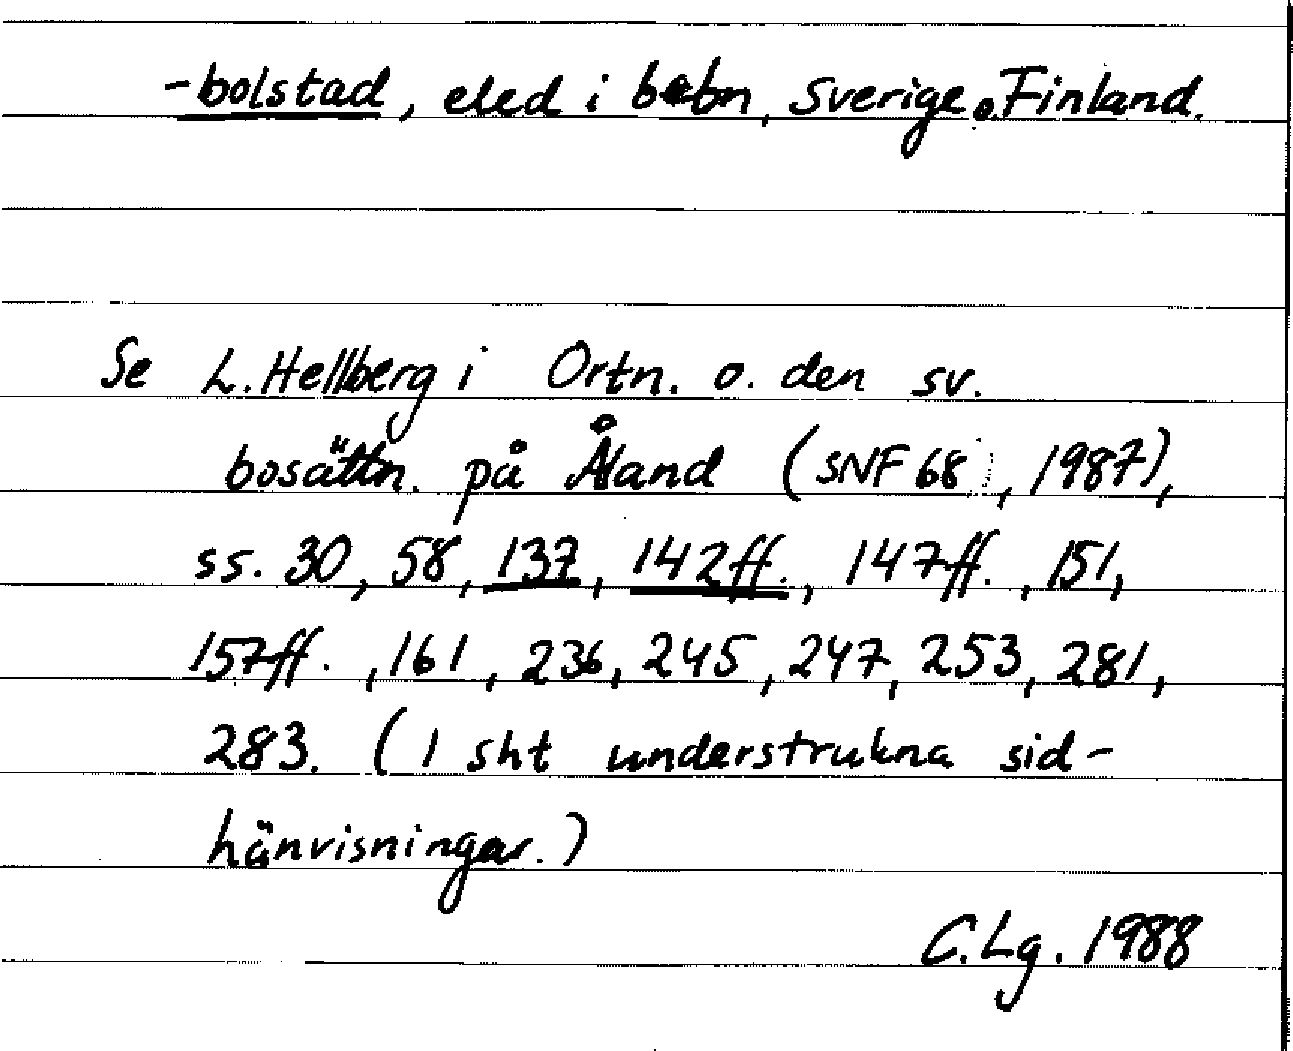 -bolstad, eled i bebn, Sverige o. Finland.
Se L. Hellberg i Ortn. o. den sv.
bosättn. på Åland (SNF 68, 1987),
ss. 30, 58, 137, 142ff., 147ff., 151,
157ff., 161, 236, 245, 247, 253, 281,
283. (I sht understrukna sid-
hänvisningar.)
C. Lg. 1988